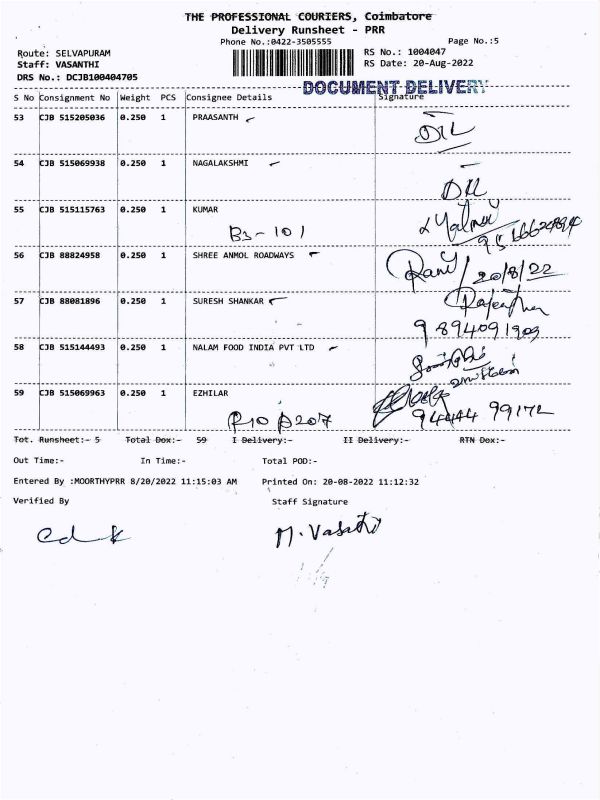 THE PROFESSIONAL COURIERS, Coimbatore
Delivery Runsheet - PRR
Phone No.:0422-3505555 Page No.:5
Route: SELVAPURAM RS No.: 1004047
Staff: VASANTHI RS Date: 20-Aug-2022
DRS No.: DCJB100404705
DOCUMENT DELIVERY
S No Consignment No Weight PCS Consignee Details Signature
53 CJB 515205036 0.250 1 PRAASANTH
54 CJB 515069938 0.250 1 NAGALAKSHMI
55 CJB 515115763 0.250 1 KUMAR
B3-101
56 CJB 88824958 0.250 1 SHREE ANMOL ROADWAYS
20/8/22
57 CJB 88081896 0.250 1 SURESH SHANKAR
9894091909
58 CJB 515144493 0.250 1 NALAM FOOD INDIA PVT LTD
59 CJB 515069963 0.250 1 EZHILAR
94444 99172
Tot. Runsheet:- 5 Total Dox:- 59 I Delivery:- II Delivery:- RTN Dox:-
Out Time:- In Time:- Total POD:-
Entered By :MOORTHYPRR 8/20/2022 11:15:03 AM Printed On: 20-08-2022 11:12:32
Verified By Staff Signature
M. Vasathi